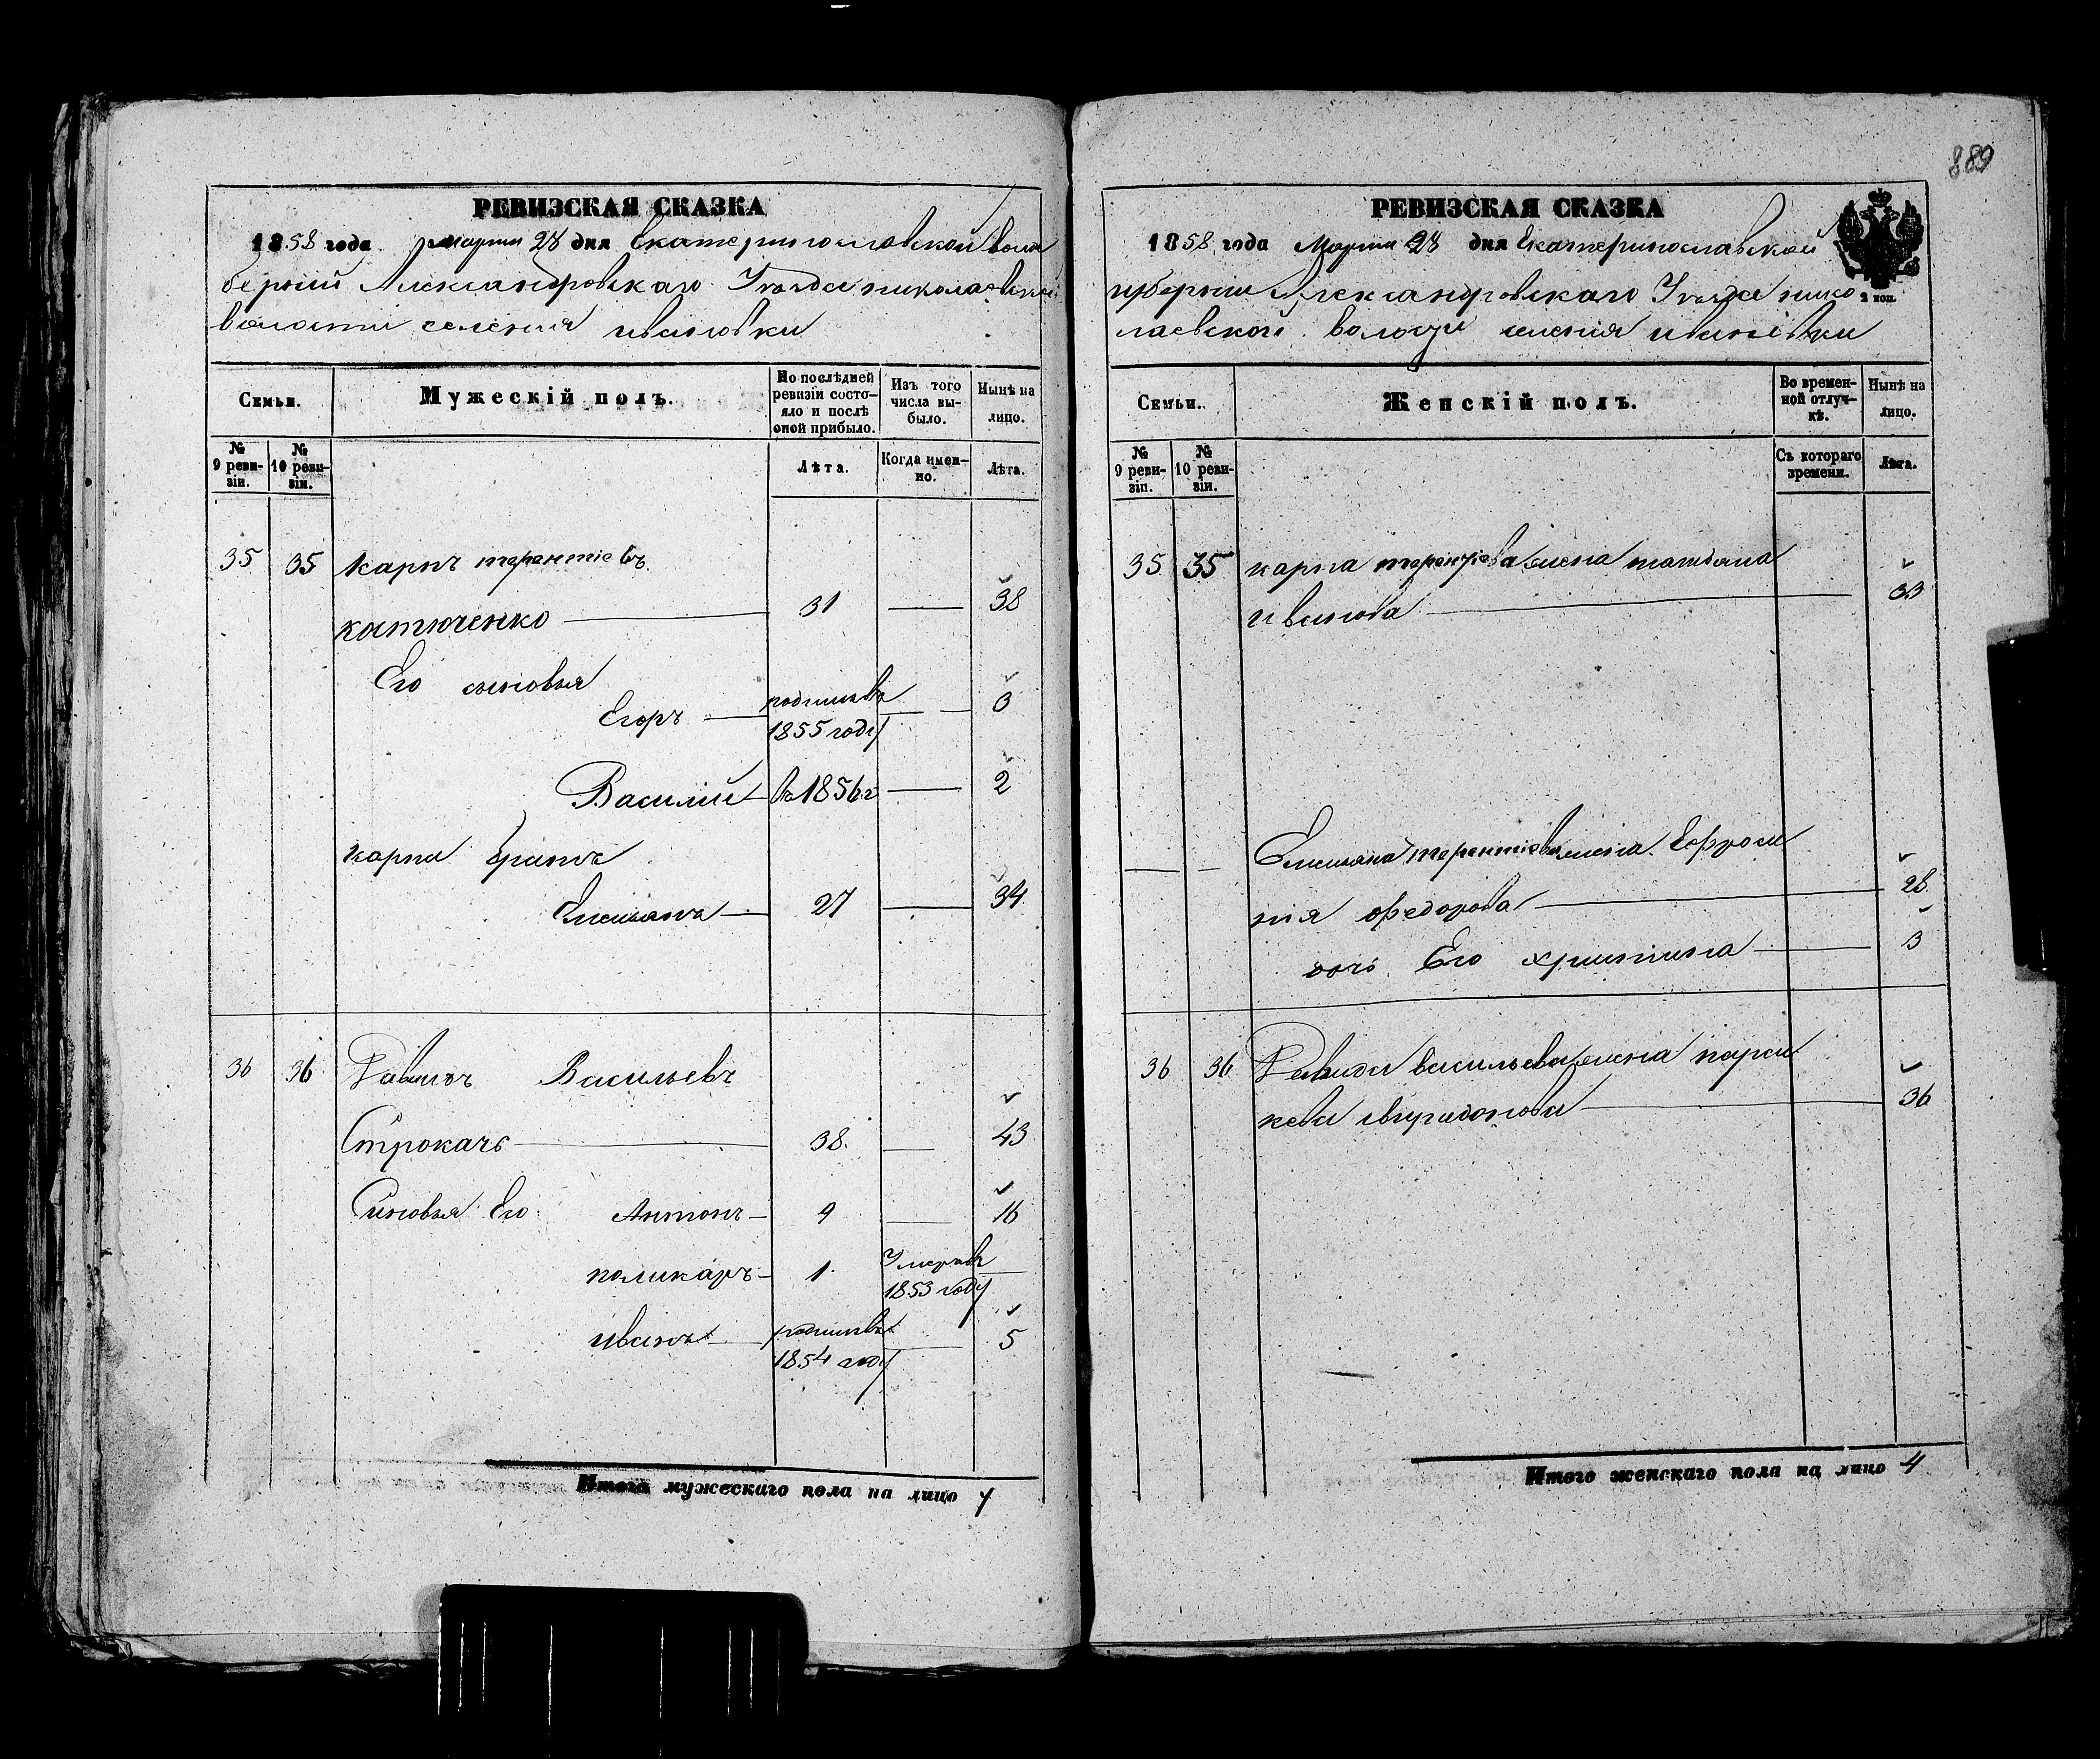 889
РЕВИЗСКАЯ СКАЗКА
1858 года марта 28 дня Екатеринославской
берніи Александровскаго Уѣзда николаевской
волости селенія ивановки
Семьи.
Мужескій полъ.
По послѣдней ревизіи состояло и послѣ оной прибыло.
Изъ того числа выбыло.
Нынѣ на лицо.
№ 9 ревизіи.
№ 10 ревизіи.
Лѣта.
Когда именно.
Лѣта.
35 35 карпъ терентіевъ
катюченко 31 38
Его сыновья
Егоръ родился въ 1855 году 3
Василій въ 1856 г 2
карпа братъ
Емельянъ 27 34
36 36 Давидъ Васильевъ
Строкачь 38 43
Сыновья Его Антонъ 9 16
поликаръ 1 Умеръ въ 1853 году
иванъ родился въ 1854 году 5
Итого мужескаго пола на лицо 7
РЕВИЗСКАЯ СКАЗКА
1858 года Марта 28 дня Екатеринославской
губерніи Александровскаго Уѣзда нико
лаевской волости селенія ивановки
2 коп.
Семьи.
Женскій полъ.
Во временной отлучкѣ.
Нынѣ на лицо.
№ 9 ревизіи.
№ 10 ревизіи.
Съ котораго времени.
Лѣта.
35 35 карпа терентіева жена татьяна
иванова 33
Емельяна терентіева жена Ефроси
нія федорова 28
дочь Его христина 3
36 36 Давида васильева жена парас
кева свиридонова 36
Итого женскаго пола на лицо 4